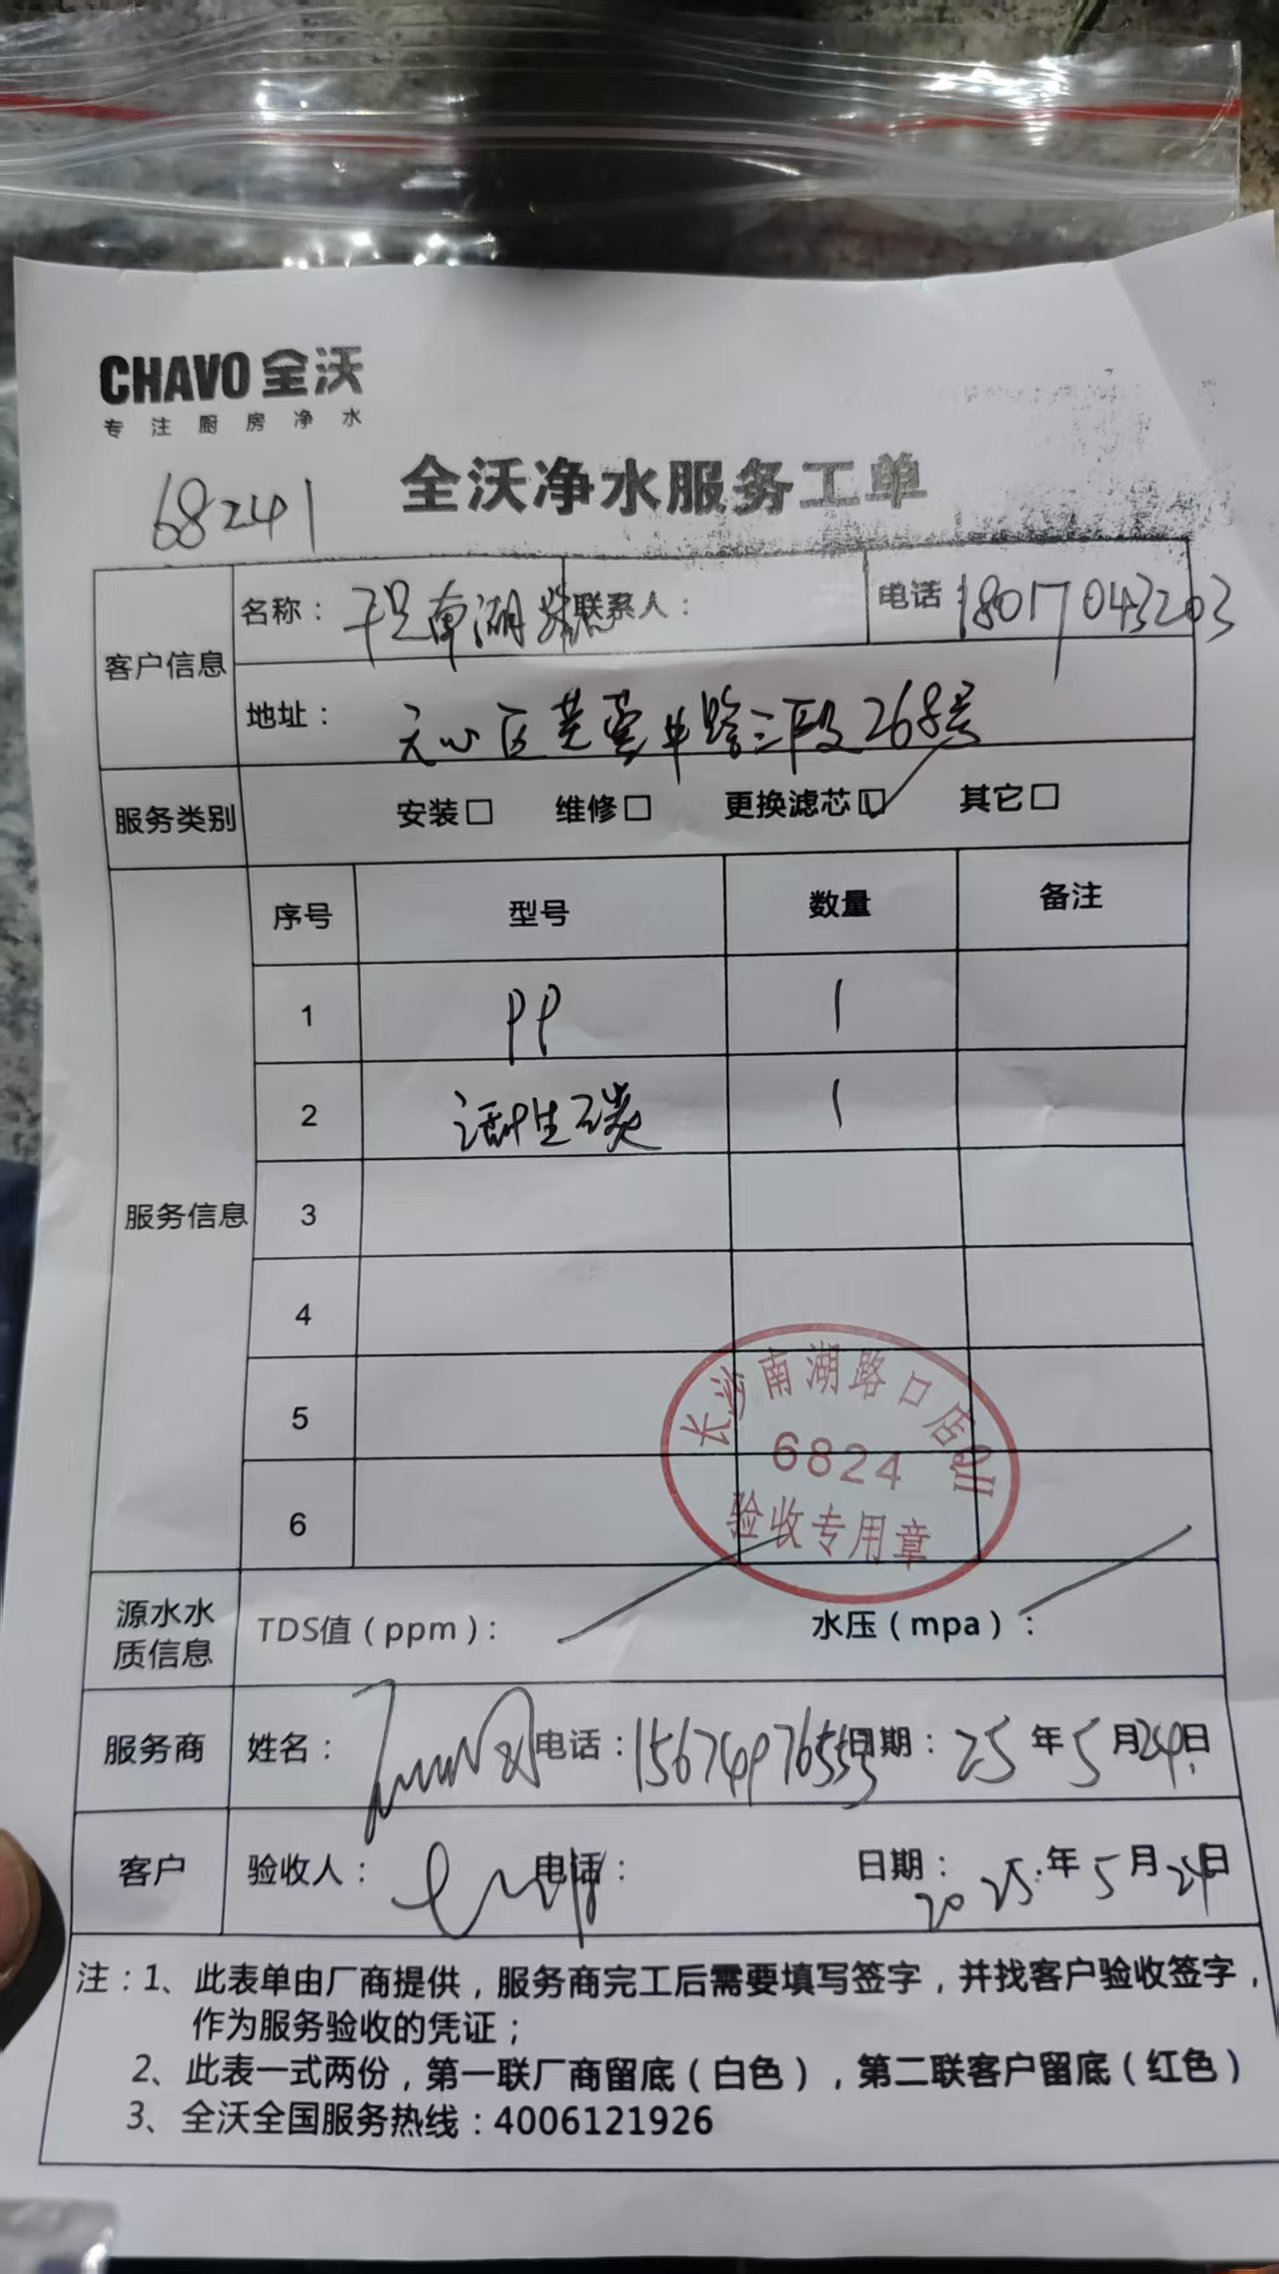 CHAVO 全沃
专注厨房净水
全沃净水服务工单
68241
客户信息
名称： 南湖 联系人： 电话 18017043203
地址： 天心区芙蓉中路三段268号
服务类别 安装□ 维修□ 更换滤芯☑ 其它□
服务信息
序号 型号 数量 备注
1 PP 1
2 活性碳 1
3
4
5
6
长沙南湖路口店
6824
验收专用章
源水水质信息 TDS值（ppm）： 水压（mpa）：
服务商 姓名： 电话：15674976553 日期：25年5月24日
客户 验收人： 电话： 日期：2025年5月24日
注：1、此表单由厂商提供，服务商完工后需要填写签字，并找客户验收签字，
作为服务验收的凭证；
2、此表一式两份，第一联厂商留底（白色），第二联客户留底（红色）
3、全沃全国服务热线：4006121926